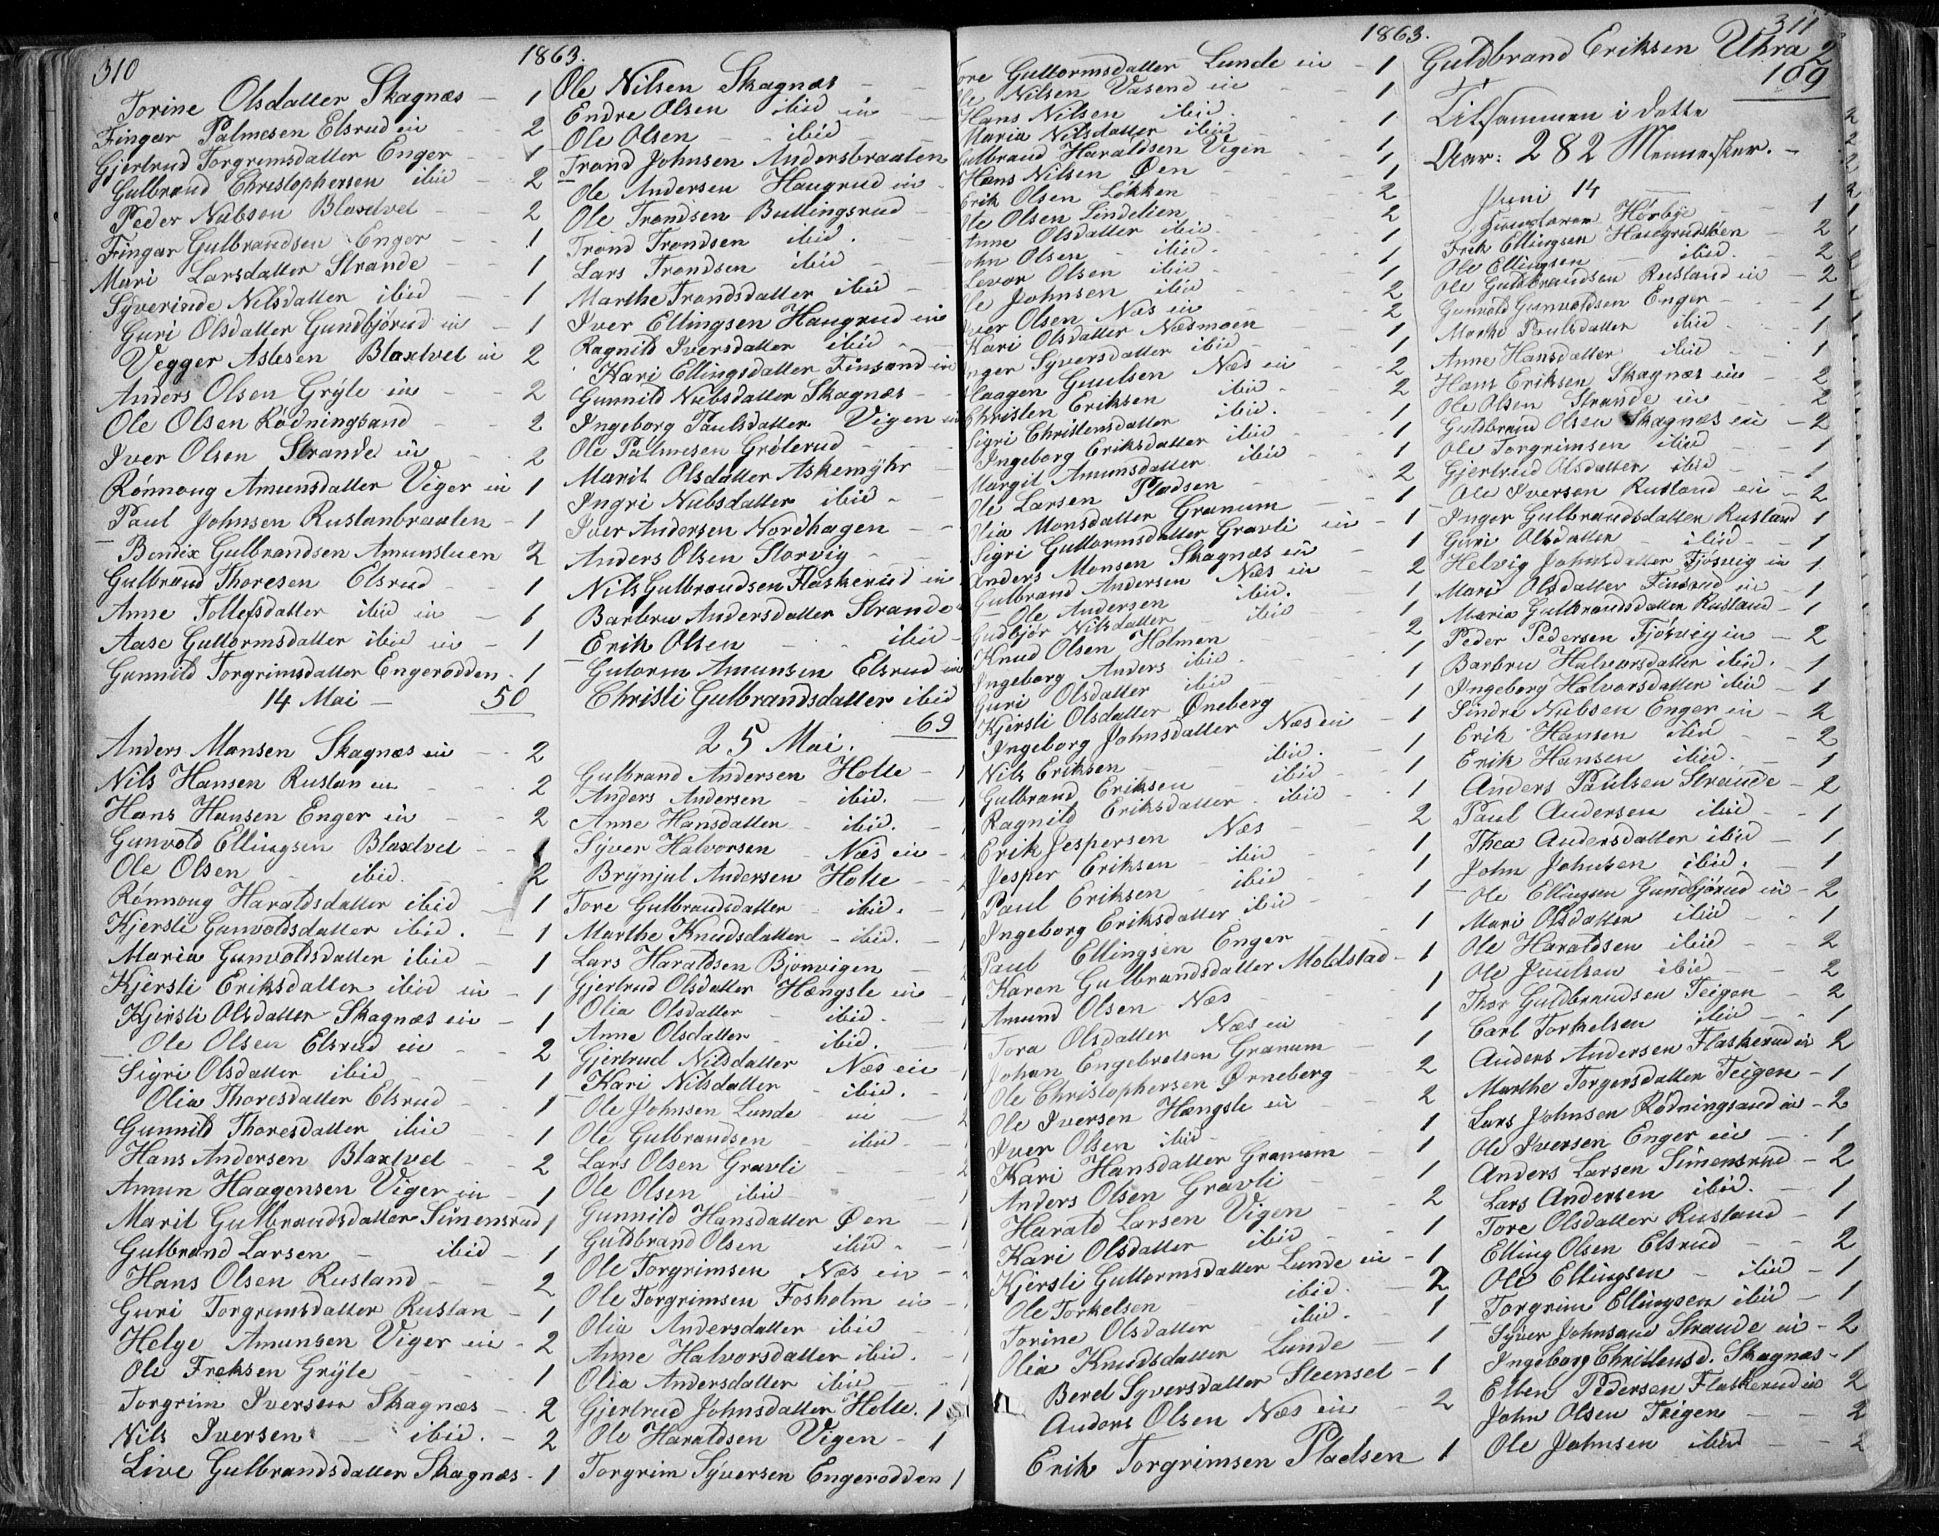 310
1863.
Torine Olsdatter Skagnæs - 1
Fingar Palmesen Elsrud en - 2
Gjertrud Torgrimsdatter Enger - 1
Gulbrand Christophersen ibid - 2
Peder Nubsen Blaxtvet - 2
Fingar Gulbrandsen Enger - 1
Mari Larsdatter Strande - 1
Syverinde Nilsdatter ibid - 1
Guri Olsdatter Gundbjørud en - 1
Vegger Aslesen Blaxtvet en 2
Anders Olsen Gryte en - 2
Ole Olsen Rødningsand - 2
Iver Olsen Strande en - 2
Rønnoug Amunsdatter Viger en 1
Paul Johnsen Ruslanbraaten - 1
Bendix Gulbrandsen Amunstuen 2
Gulbrand Thoresen Elsrud - 1
Anne Tollefsdatter ibid en - 1
Aase Guttormsdatter ibid en - 1
Gunnild Torgrimsdatter Engerodden - 1
14 Mai - 50
Anders Monsen Skagnæs en - 2
Nils Hansen Ruslan en - 2
Hans Hansen Enger en - 2
Gunvold Ellingsen Blaxtvet - 1
Ole Olsen - ibid. - 2
Rønnoug Haraldsdatter ibid - 1
Kjersti Gunvoldsdatter ibid. - 1
Maria Gunvoldsdatter ibid - 1
Kjersti Eriksdatter ibid en - 1
Kjersti Olsdatter Skagnæs en - 1
Ole Olsen Elsrud en - 2
Sigri Olsdatter ibid - 1
Olia Thoresdatter Elsrud - 1
Gunnild Thoresdatter ibid - 1
Hans Andersen Blaxtvet - 2
Amun Haagensen Viger en - 1
Marit Gulbrandsdatter Simensrud 1
Gulbrand Larsen - ibid - 1
Hans Olsen Rusland - 2
Guri Torgrimsdatter Ruslan - 1
Helge Amunsen Viger en - 2
Ole Freksen Gryte - 1
Torgrim Iversen Skagnæs - 2
Nils Iversen - ibid. - 2
Live Gulbrandsdatter Skagnæs - 1
Ole Nilsen Skagnæs - -
Endre Olsen ibid en -
Ole Olsen - ibid -
Trond Johnsen Andersbraaten
Ole Andersen Haugrud en -
Ole Trondsen Bullingsrud -
Trond Trondsen ibid. -
Lars Trondsen ibid -
Marthe Trondsdatter ibid -
Iver Ellingsen Haugrud en
Ragnild Iversdatter ibid -
Kari Ellingsdatter Finsand en
Gunnild Nubsdatter Skagnæs -
Ingeborg Paulsdatter Vigen en
Ole Palmesen Grøterud -
Marit Olsdatter Askemyhr -
Ingri Nubsdatter ibid -
Iver Andersen Nordhagen -
Anders Olsen Storvig -
Nils Gulbrandsen Flaskerud en
Barbru Andersdatter Strande
Erik Olsen - ibid -
Gutorm Amunsen Elsrud en
Christi Gulbrandsdatter ibid
69
25 Mai.
Gulbrand Andersen Holte - 1
Anders Andersen - ibid. - 1
Anne Hansdatter - ibid. -
Syver Halvorsen - Næs en -
Brynjul Andersen Holte -
Tore Gulbrandsdatter - ibid. -
Marthe Knudsdatter - ibid. -
Lars Haraldsen Bjonvigen -
Gjertrud Olsdatter Hængsle en -
Olia Olsdatter - ibid. -
Anne Olsdatter - ibid. -
Gjertrud Nilsdatter Næs en -
Kari Nilsdatter - ibid. -
Ole Johnsen Lunde - en -
Ole Gulbrandsen - ibid -
Lars Olsen Gravli -
Ole Olsen ibid -
Gunnild Hansdatter Øen -
Guldbrand Olsen ibid -
Ole Torgrimsen Næs en -
Ole Torgrimsen Fosholm en -
Olia Andersdatter ibid -
Anne Halvorsdatter ibid. -
Olia Andersdatter ibid -
Gjertrud Johnsdatter Holte. 1
Ole Haraldsen Vigen - 1
Torgrim Syversen Engerodden 1
1863.
311
Tore Guttormsdatter Lunde en - 1
Ole Nilsen Vasend en - 1
Hans Nilsen ibid. - 1
Maria Nilsdatter ibid - 1
Gulbrand Haraldsen Vigen - 1
Hans Nilsen Øen - 1
Erik Olsen Løkken - 2
Ole Olsen Lindelien - 2
Anne Olsdatter ibid - 1
John Olsen - ibid. - 1
Levor Olsen ibid - 1
Ole Johnsen ibid - 2
Iver Olsen Næs en - 2
Kari Olsdatter Næsmoen 1
Inger Syversdatter ibid - 1
Haagen Guulsen Næs en - 2
Christen Eriksen ibid - 2
Sigri Christensdatter ibid. - 1
Ingeborg Eriksdatter ibid - 1
Margit Amunsdatter ibid -
Ole Larsen Pladsen - 2
Olia Monsdatter Granum - 1
Sigri Guttormsdatter Gravli en - 1
Anders Monsen Skagnæs en - 1
Gulbrand Andersen Næs en - 2
Ole Andersen ibid. - 1
Gudbjør Nilsdatter - ibid - 1
Knud Olsen Holmen - 2
Ingeborg Anders ibid. - 1
Guri Olsdatter ibid - 1
Kjersti Olsdatter Øneberg - 1
Ingeborg Johnsdatter Næs en - 1
Nils Eriksen - ibid. - 1
Gulbrand Eriksen - ibid - 1
Ragnild Eriksdatter - ibid - 1
Erik Jespersen Næs - 2
Jesper Eriksen - ibid - 1
Paul Eriksen - ibid - 1
Ingeborg Eriksdatter ibid - 1
Paul Ellingsen Enger - 1
Karen Gulbrandsdatter Moldstad - 1
Amund Olsen Næs - 1
Tora Olsdatter Næs en - 1
Johan Engebretsen Granum - 1
Ole Christophersen Ørneberg - 2
Ole Iversen Hængsle en - 2
Iver Olsen ibid - 1
Kari Hansdatter Granum - 1
Anders Olsen Gravli - 1
Harald Larsen Vigen - 2
Kari Olsdatter ibid - 1
Kjersti Guttormsdatter Lunde en - 1
Ole Torkelsen - ibid. - 2
Torine Olsdatter - ibid. 1
Olia Knudsdatter Lunde - 1
Beret Syversdatter Steenset - 1
Anders Olsen Næs en - 2
Erik Torgrimsen Pladsen 1
Guldbrand Eriksen Ukra 2
169
Tilsammen i dette
Aar: 282 Mennesker. -
Juni 14
Hørbye - 1
Frek Ellingsen Haugrudsben - 2
Ole Ellingsen - ibid. 2
Ole Guldbrandsen Rusland en - 2
Gunvold Gunvoldsen Enger - 1
Marte Poulsdatter ibid. - 1
Anne Hansdatter ibid - 1
Hans Eriksen Skagnæs en - 2
Ole Olsen Strande en - 2
Guldbrand Olsen Skagnæs en - 2
Ole Torgrimsen ibid - 1
Gjertrud Olsdatter ibid - 1
Ole Iversen Rusland en - 2
Inger Gulbrandsdatter Rusland 1
Guri Olsdatter - ibid - 1
Helvig Johnsdatter Fjøsvig en 1
Mari Olsdatter Finsrud en - 1
Maria Gulbrandsdatter Rusland - 1
Peder Pedersen Fjøsvig en - 2
Barbru Halvorsdatter ibid. - 1
Ingeborg Halvorsdatter ibid - 1
Sindre Nubsen Enger en - 2
Erik Hansen ibid - 2
Erik Hansen ibid. - 1
Anders Paulsen Strande - 2
Paul Andersen ibid - 1
Thea Andersdatter ibid - 1
John Johnsen ibid. - 1
Ole Ellingsen Gundbjørud en - 2
Mari Olsdatter ibid - 1
Ole Haraldsen ibid - 2
Ole Juulsen ibid - 2
Thor Guldbrandsen Teigen - 2
Carl Torkelsen ibid - 1
Anders Andersen Flaskerud en 2
Marthe Torgersdatter Teigen - 1
Lars Johnsen Rødningsand en - 2
Ole Iversen Enger en - 1
Anders Larsen Simensrud - 2
Lars Andersen ibid. - 1
Tore Olsdatter Rusland - 1
Elling Olsen Elsrud - 2
Ole Ellingsen - ibid - 1
Torgrim Ellingsen ibid - 1
Syver Johnsen Strande en - 2
Ingeborg Christensd. Skagnæs - 1
Ellen Pedersen Flaskerud en 2
John Olsen Teigen - 2
Ole Johnsen ibid - 2